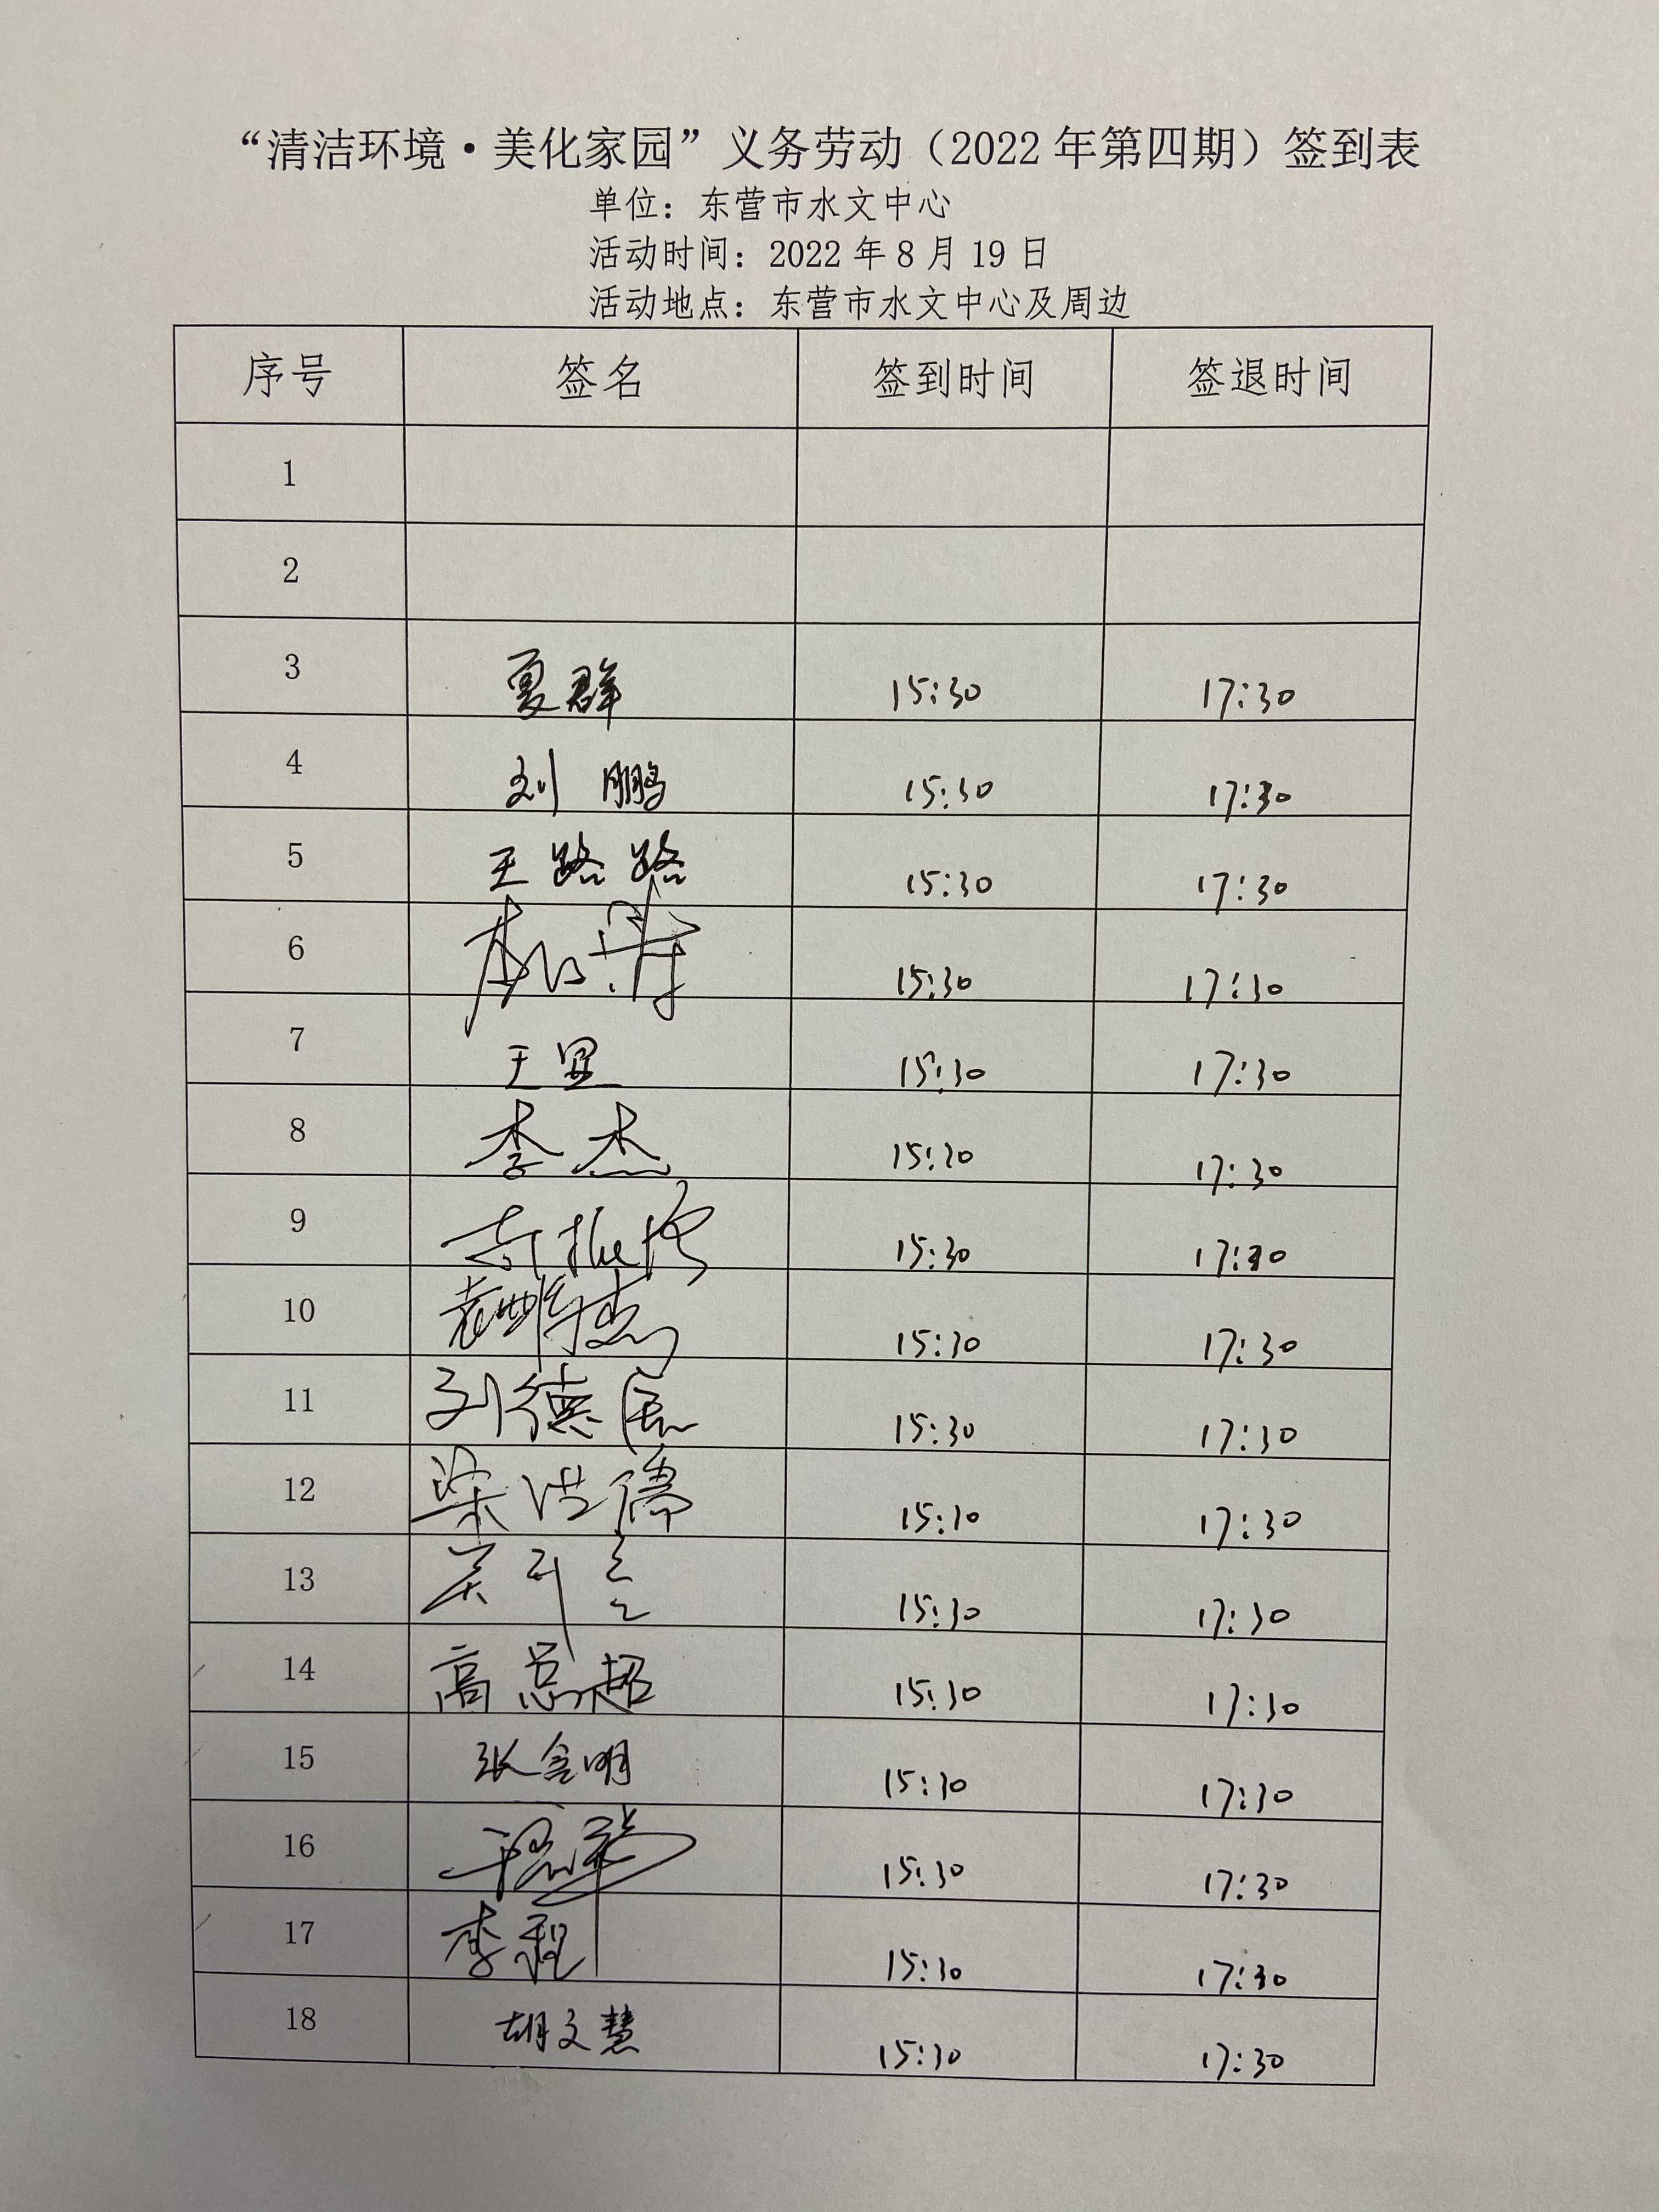 “清洁环境·美化家园”义务劳动（2022年第四期）签到表
单位：东营市水文中心
活动时间：2022年8月19日
活动地点：东营市水文中心及周边
序号 签名 签到时间 签退时间
1
2
3 夏群 15:30 17:30
4 刘鹏 15:30 17:30
5 王路路 15:30 17:30
6 15:30 17:30
7 王昱 15:30 17:30
8 李杰 15:30 17:30
9 15:30 17:30
10 15:30 17:30
11 刘德 15:30 17:30
12 梁洪儒 15:30 17:30
13 15:30 17:30
14 高总超 15:30 17:30
15 张含明 15:30 17:30
16 15:30 17:30
17 李程 15:30 17:30
18 胡文慧 15:30 17:30